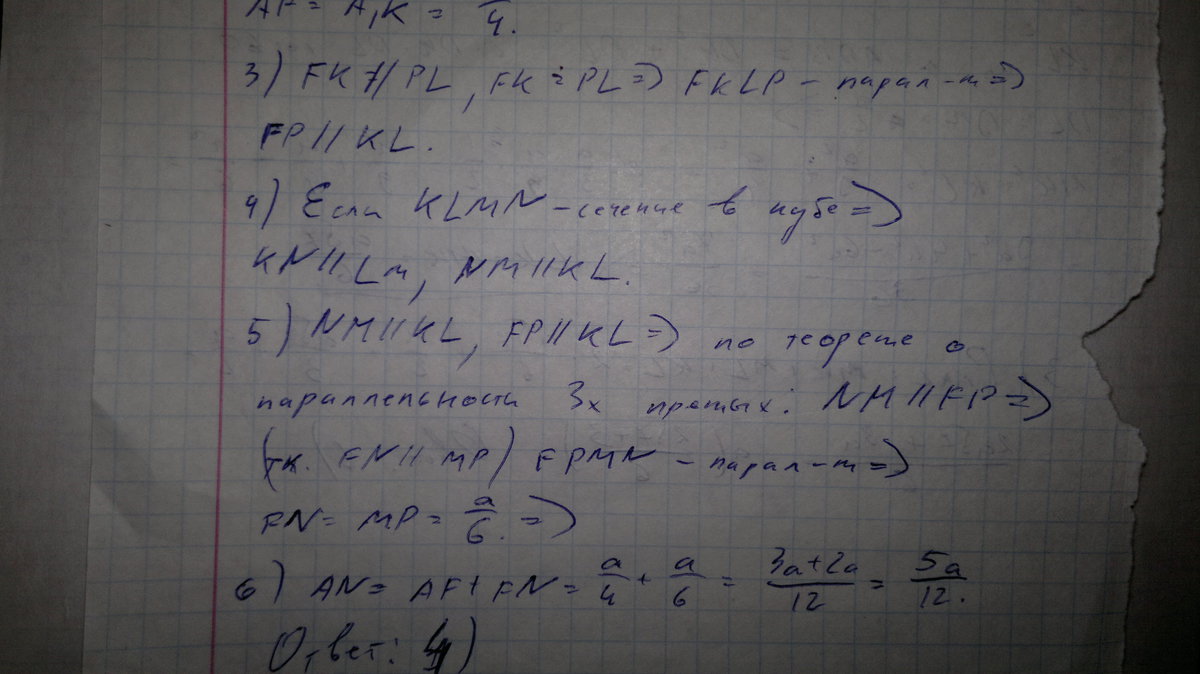 AF = A₁K = a/4.
3) FK // PL, FK = PL => FKLP - парал-м =>
FP // KL.
4) Если KLMN - сечение в кубе =>
KN // LM, NM // KL.
5) NM // KL, FP // KL => по теореме о
параллельности 3х прямых: NM // FP =>
(т.к. FN // MP) FPMN - парал-м =>
FN = MP = a/6. =>
6) AN = AF + FN = a/4 + a/6 = 3a+2a/12 = 5a/12.
Ответ: 4)